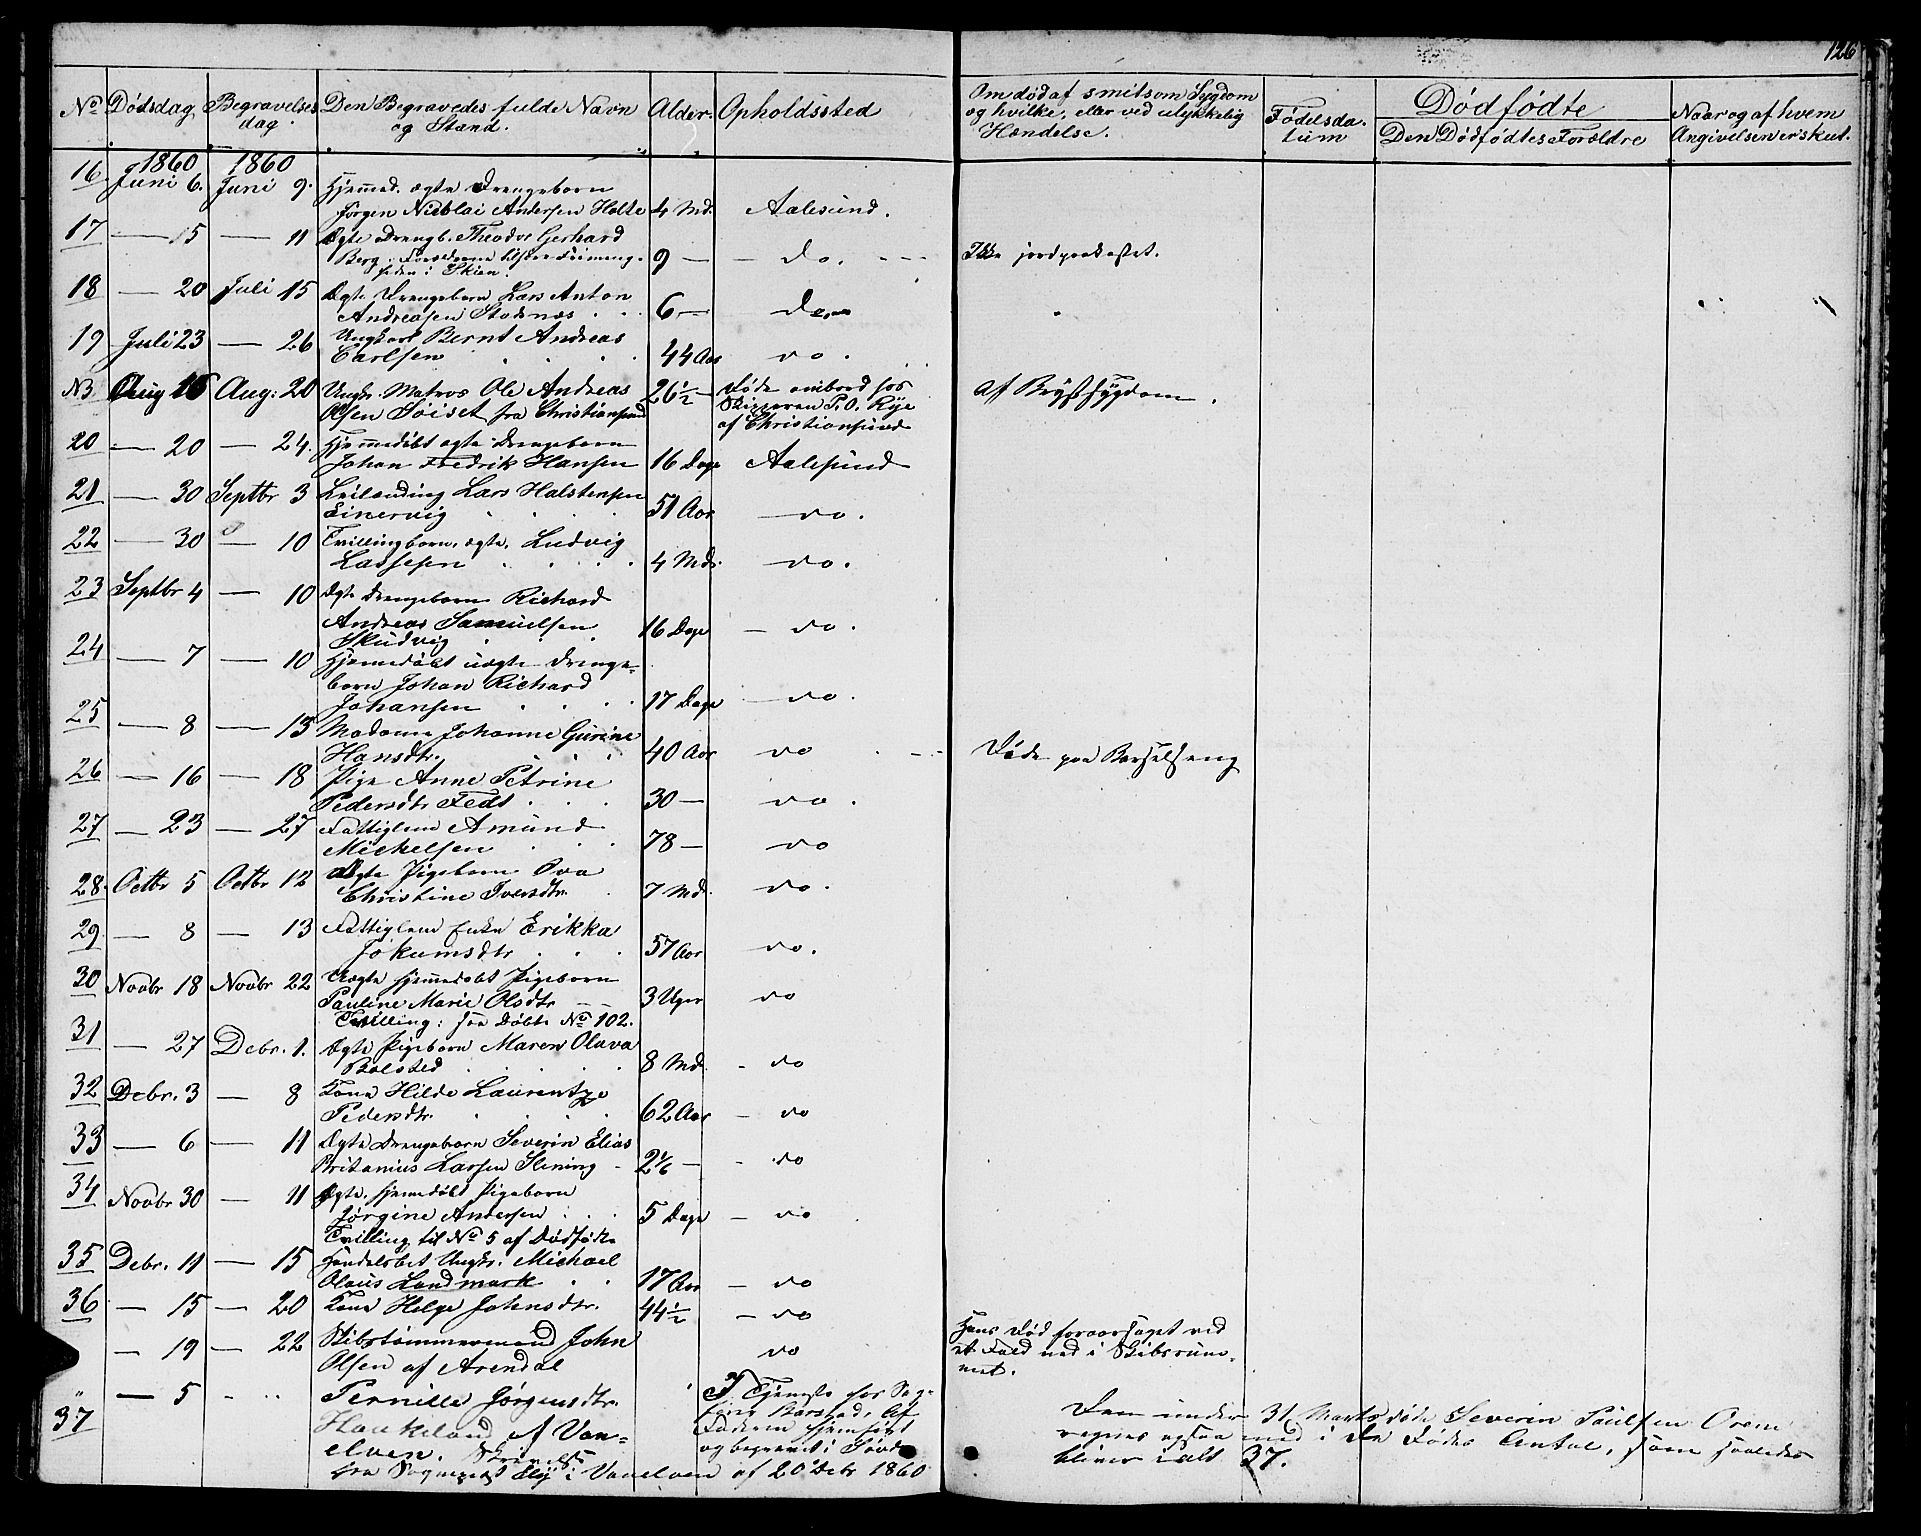 126
No Dødsdag Begravelses dag. Den Begravedes fulde Navn og Stand. Alder. Opholdssted Om død af smitsom Sygdom og hvilke, eller ved ulykkelig Hændelse. Fødelsdatum Dødfødte Den Dødfødtes Forældre Naar og af hvem Angivelsen er skut.
1860 1860
16 Juni 6. Juni 9. Hjemmed. ægte Drengebarn
Jørgen Nicolai Andersen Holte 4 Md. Aalesund.
17 — 15 — 11 Ægte Drengb. Theodor Gerhard
Berg. Forældrene tilhører Frimenigheden i Skien. 9 — — do. Ikke jordpaakastet.
18 — 20 Juli 15 Ægte Drengebarn Lars Anton
Andreasen Stoknæs 6 — do
19 Juli 23 — 26 Ungkarl Bernt Andreas
Carlsen 44 Aar do.
NB Aug 16 Aug: 20 Ungk. Matros Ole Andreas 26½ — Døde ombord hos
Olsen Söiset fra Christiansund Skipperen P. O. Rye af Christiansund af Brystsygdom.
20 — 20 — 24. Hjemmedøbt ægte Drengebarn
Johan Fredrik Hansen 16 Dage Aalesund
21 — 30 Septbr 3 Leilænding Lars Halstensen
Einervig 51 Aar do.
22 — 30 — 10 Tvillingbarn, ægte, Ludvig
Lassesen 4 Md. do.
23 Septbr 4 — 10 Ægte Drengebarn Richard
Andreas Samuelsen
Skudvig 16 Dage — do.
24 — 7 — 10 Hjemmedøbt uægte Drenge-
barn Johan Richard
Johansen 17 Dage do.
25 — 8 — 13 Madame Johanne Gurine
Hansdtr. 40 Aar do Døde paa Barselseng
26 — 16 — 18 Pige Anne Petrine
Pedersdtr Fedt 30 — do.
27 — 23 — 27 Fattiglem Amund
Michelsen 78 — do
28. Octbr 5 Octbr 12 Ægte Pigebarn Ova
Christine Iversdtr. 7 Md. do.
29 — 8 — 13 Fattiglem Enke Erikka
Jokumsdtr 57 Aar do.
30 Novbr 18 Novbr 22 Uægte hjemmedøbt Pigebarn
Pauline Marie Olsdtr 3 Uger do
Tvilling: fra Døbte No 102.
31 — 27 Debr. 1. Ægte Pigebarn Maren Olava
Bolsted 8 Md. - do
32 Debr. 3 — 8 Kone Hilde Laurentze
Pedersdtr. 62 Aar — do
33 — 6 — 11 Ægte Drengebarn Severin Elias
Britanius Larsen Slening 2 1/6 — - do
34 Novbr 30 — 11 Ægte, hjemmedøbt Pigebarn
Jørgine Andersen 5 Dage — do
Tvilling til No 5 af Dødfødte
35 Debr. 11 — 15 Handelsbet Ungk. Michael
Olaus Landmark 17 Aar — do
36 — 15 — 20 Kone Helge Johnsdtr. 44½ — do
— 19 — 22 Skibstømmermand John
Olsen af Arendal do Hans Død foraarsaget ved et Fald ned i Skibsrummet.
" — 5 - " Pernille Jørgensdtr.
37 Haukeland af Van-
elven. I Tjeneste hos
Faderen hjemført
og begravet i
fra Sognepræst i Vanelven af 20 Debr 1860
Den under 31 Marts døde Severin Paulsen Orem
regnes ogsaa med i de Dødes Antal, som saaledes
bliver ialt 37.